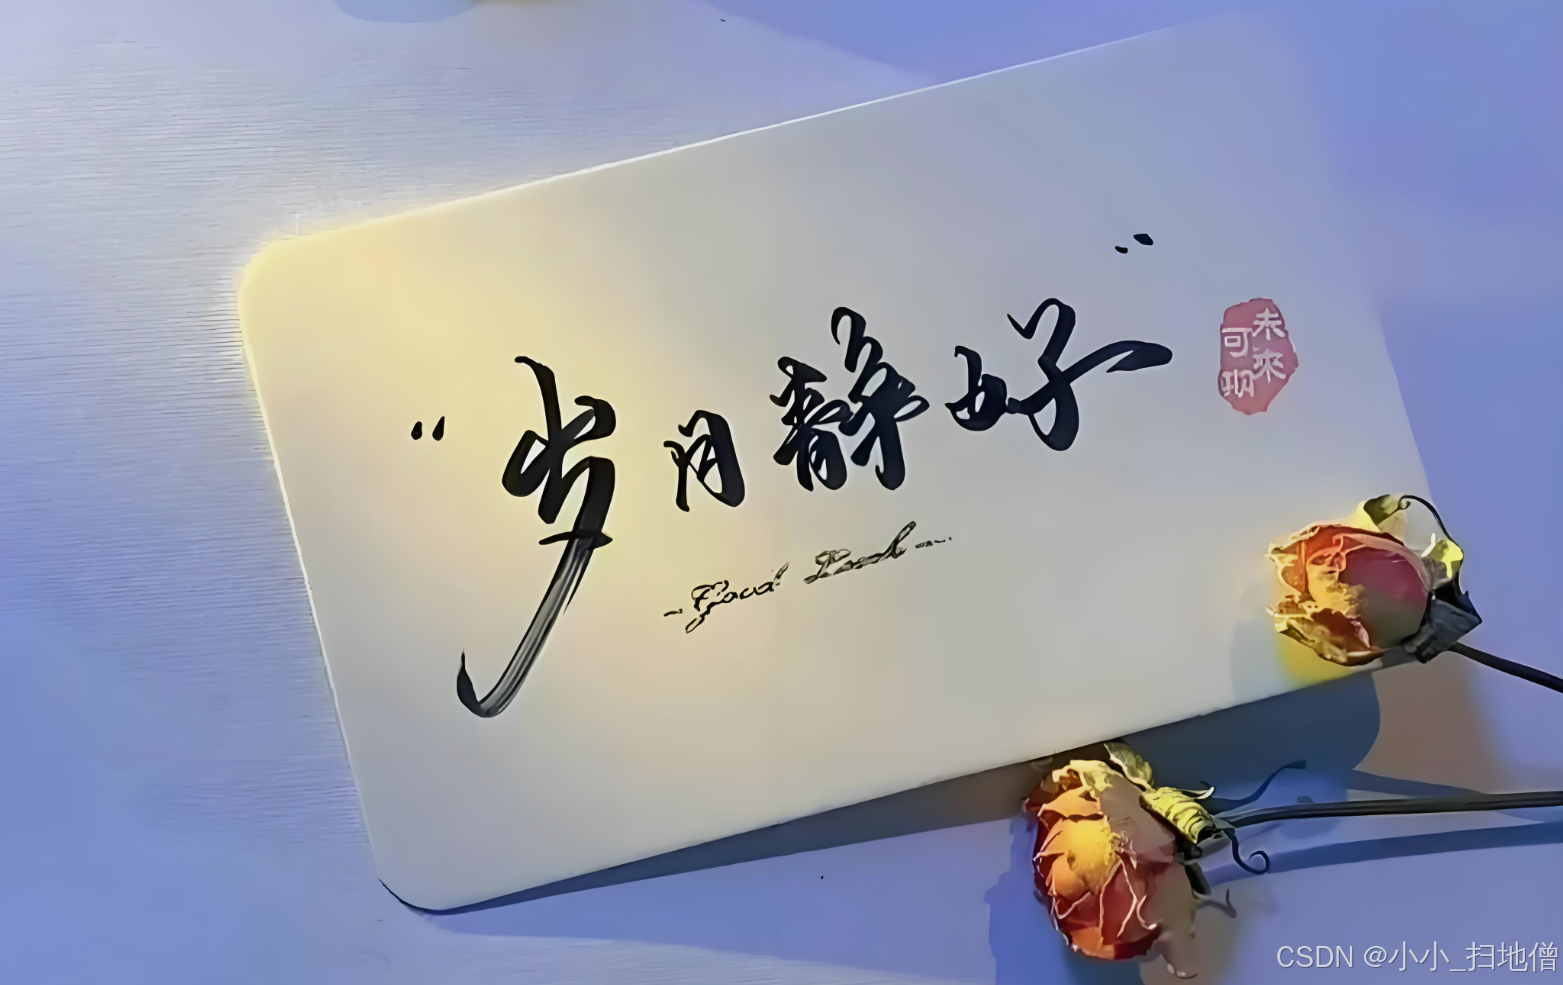 “岁月静好”
未来可期
-Good Luck-
CSDN @小小_扫地僧